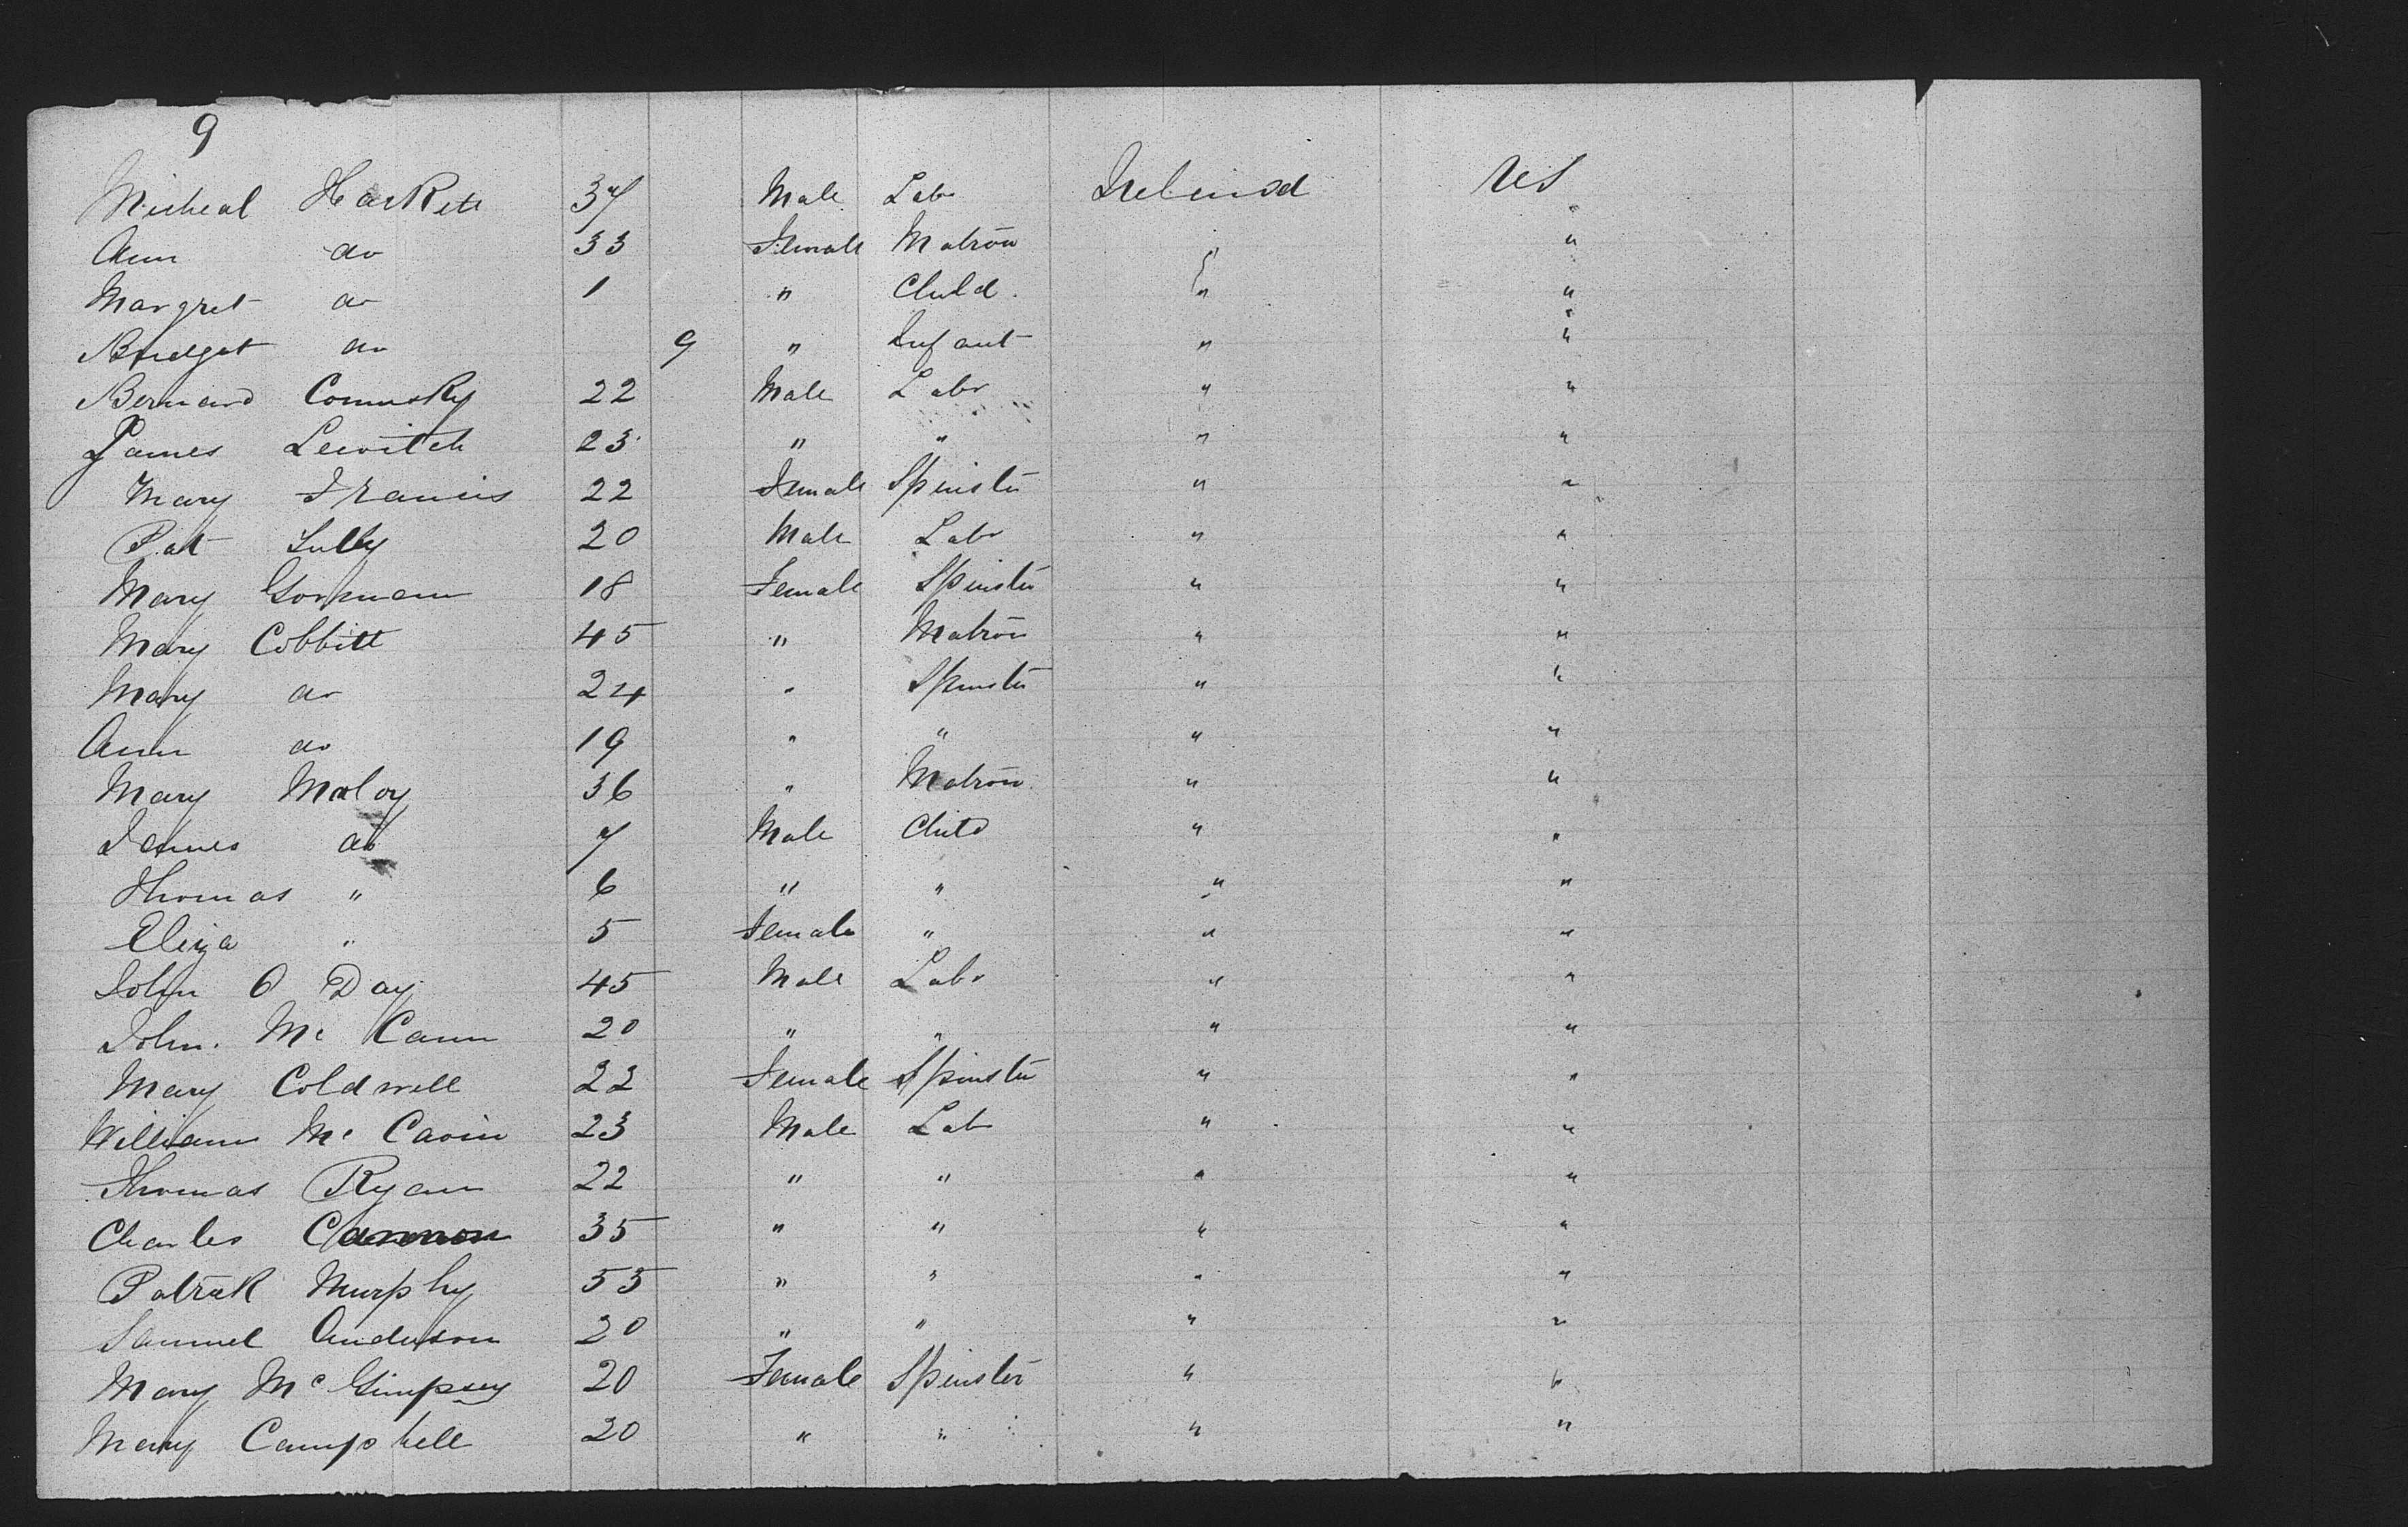 9
Micheal Haskett 37 Male Lab Ireland US
Ann do 33 Female Matron " "
Margret do 1 " Child " "
Bridget do 9 " Infant " "
Bernard Comusky 22 Male Labr " "
James Lewitch 23 " " " "
Mary Francis 22 Female Spinster " "
Pat Lully 20 Male Labr " "
Mary Gorman 18 Female Spinster " "
Mary Cobbitt 45 " Matron " "
Mary do 24 " Spinster " "
Ann do 19 " " " "
Mary Maloy 36 " Matron " "
James do 7 Male Child " "
Thomas " 6 " " " "
Eliza " 5 Female " " "
John O Day 45 Male Labr " "
John. Mc Cann 20 " " " "
Mary Coldwell 22 Female Spinster " "
William Mc Cavin 23 Male Lab " "
Thomas Ryan 22 " " " "
Charles Cannon 35 " " " "
Patrick Murphy 55 " " " "
Samuel Anderson 20 " " " "
Mary Mc Gimpsey 20 Female Spinster " "
Mary Campbell 20 " " " "